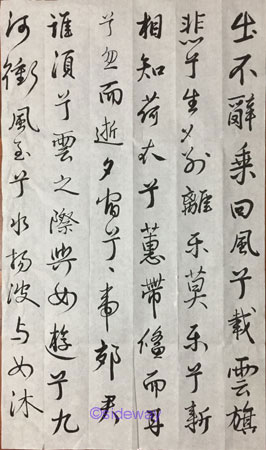 出不辭乘回風兮載雲旗
悲兮生别離乐莫乐兮新
相知荷衣兮蕙帶儵而来
兮忽而逝夕宿兮帝郊君
誰須兮雲之際與女遊兮九
河衝風至兮水揚波与女沐
©sideway